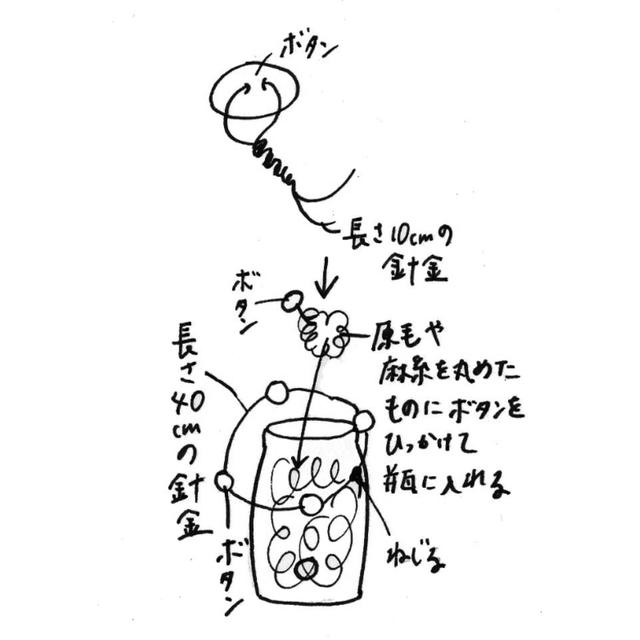 ボタン
長さ10cmの
針金
ボタン
原毛や
麻糸を丸めた
ものにボタンを
ひっかけて
瓶に入れる
長さ40cmの針金
ねじる
ボタン